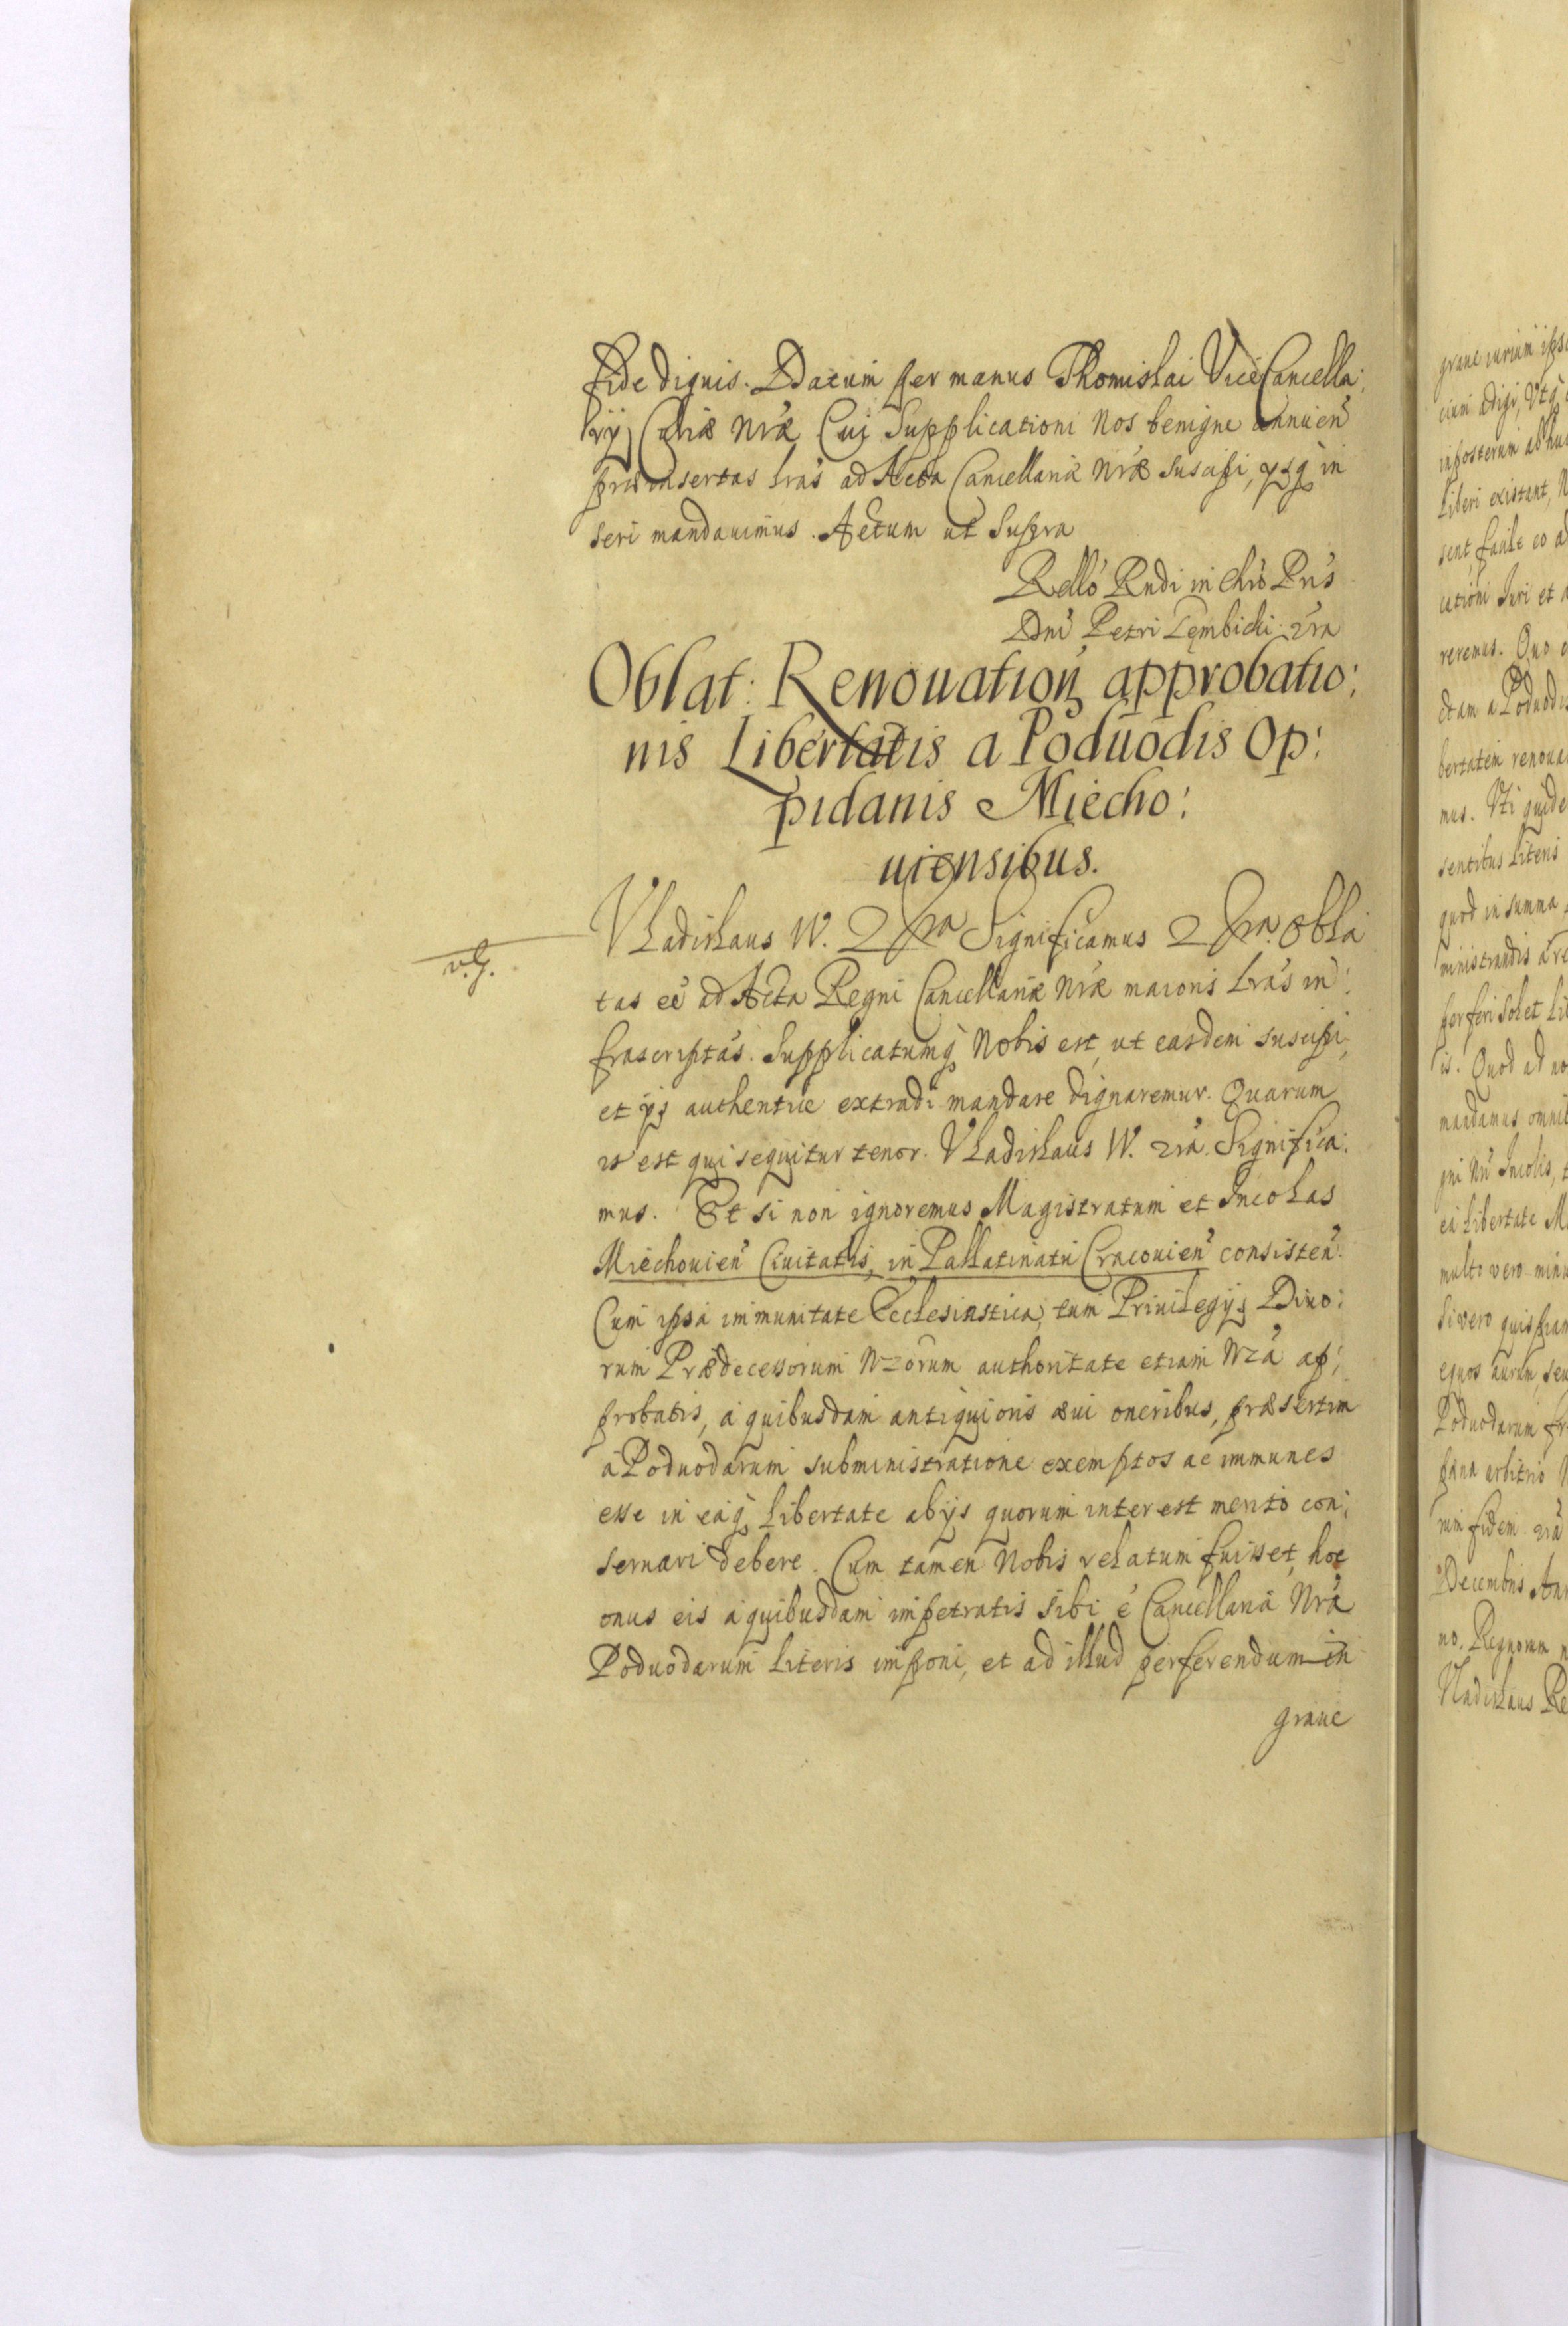 fide dignis. Datum per manus Thomislai ViceCancella:
rij Curiæ Nræ Cui Supplicationi Nos benigne annuen
præinsertas lras ad Acta Cancellariæ Nræ suscipi, ysq in
seri mandauimus. Actum ut Supra
Rello Rndi in Chro Pris
Dni Petri Gembicki: 2ra
Oblat: Renouation approbatio:
nis Libertatis a Poduodis Op:
pidanis Miecho:
uiensibus.
v. G.
Vladislaus IV. 2ra Significamus 2ra. Obla
tas eê ad Acta Regni Cancellariæ Nræ maioris lras in:
frascriptas. Supplicatumq Nobis est, ut easdem suscipi,
et ijs authentice extradi mandare dignaremur. Quarum
is est qui sequitur tenor. Vladislaus IV. 2ra. Significa:
mus. Et si non ignoremus Magistratum et Incolas
Miechouien Ciuitatis, in Pallatinatu Cracouien consisten
Cum ipsa immunitate Ecclesiastica, tum Priuilegijs Diuo:
rum Prædecessorum Nrorum authoritate etiam Nra ap:
probatis, a quibusdam antiquioris æui oneribus, præsertim
a Poduodarum subministratione exemptos ac immunes
esse in eaq Libertate ab ijs quorum interest merito con:
seruari debere. Cum tamen Nobis relatum fuisset, hoc
onus eis a quibusdam impetratis sibi e Cancellaria Nra
Poduodarum Literis imponi, et ad illud perferendum in
graue
graue iurium ipso
cium adigi, Vtq
inposterum ab hu
Liberi existant, N
sent, facile eo a
cationi Iuri et
reremus. Quo
ctam a Poduodis
bertatem renoua
mus. Vti quide
sentibus Literis
quod in summa
ministrandis a re
perferi solet Li
is. Quod ad no
mandamus omnib
gni Nri Incolis,
ea Libertate M
multo vero minu
Si vero quispiam
equos aurum, seu
Poduodarum
pæna arbitrio
rum fidem 2ra
Decembris Ann
no. Regnorum
Vladislaus Re